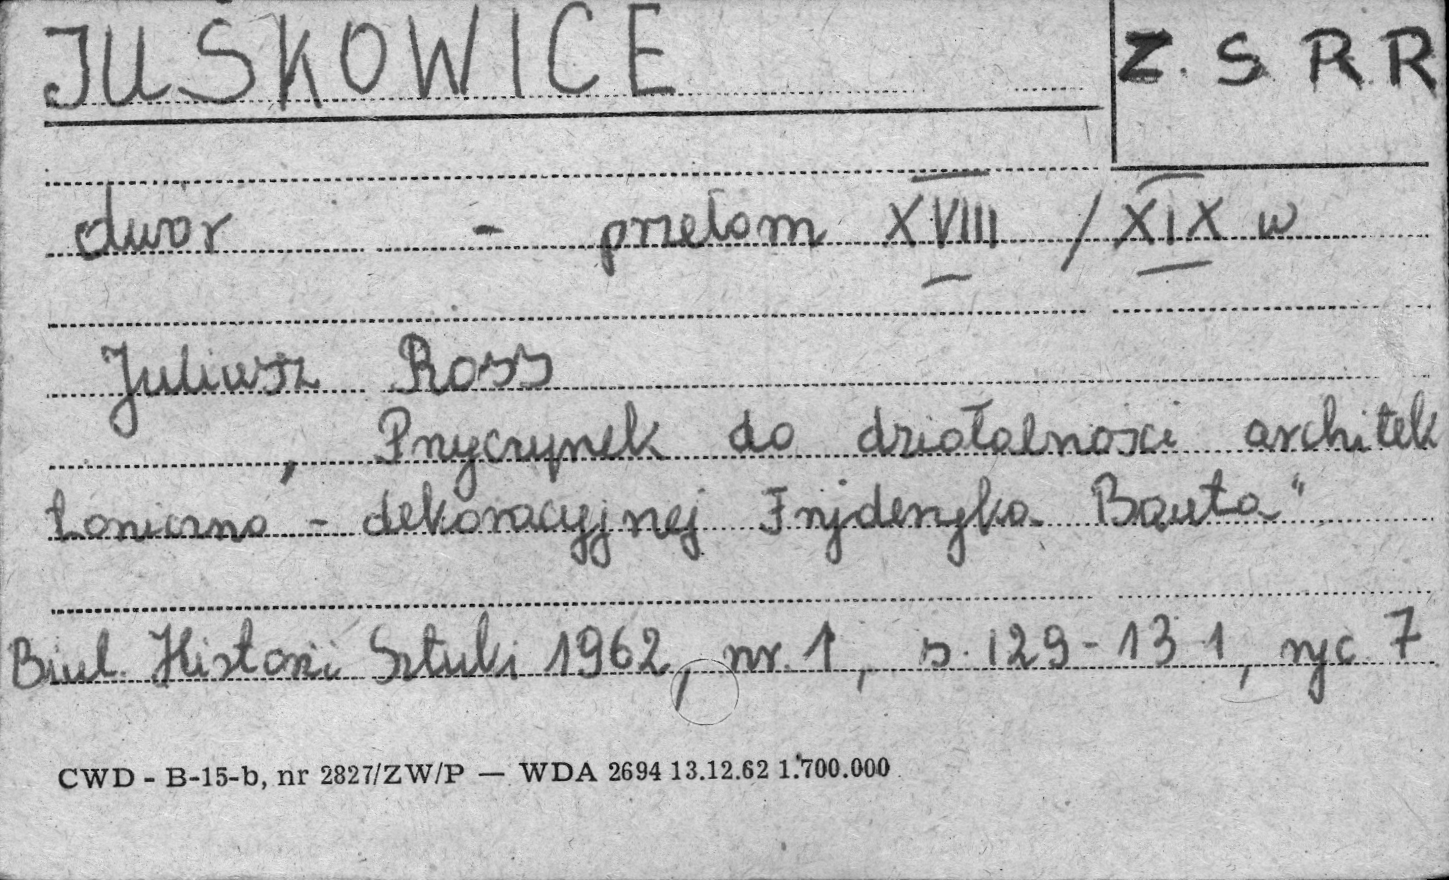 JUŚKOWICE
Z. S. R. R
dwór - przełom XVIII / XIX w
Juliusz Ross
„Przyczynek do działalności architek
toniczno - dekoracyjnej Fryderyka Bauta"
Biul. Historii Sztuki 1962, nr. 1, s. 129-131, ryc 7
CWD - B-15-b, nr 2827/ZW/P — WDA 2694 13.12.62 1.700.000